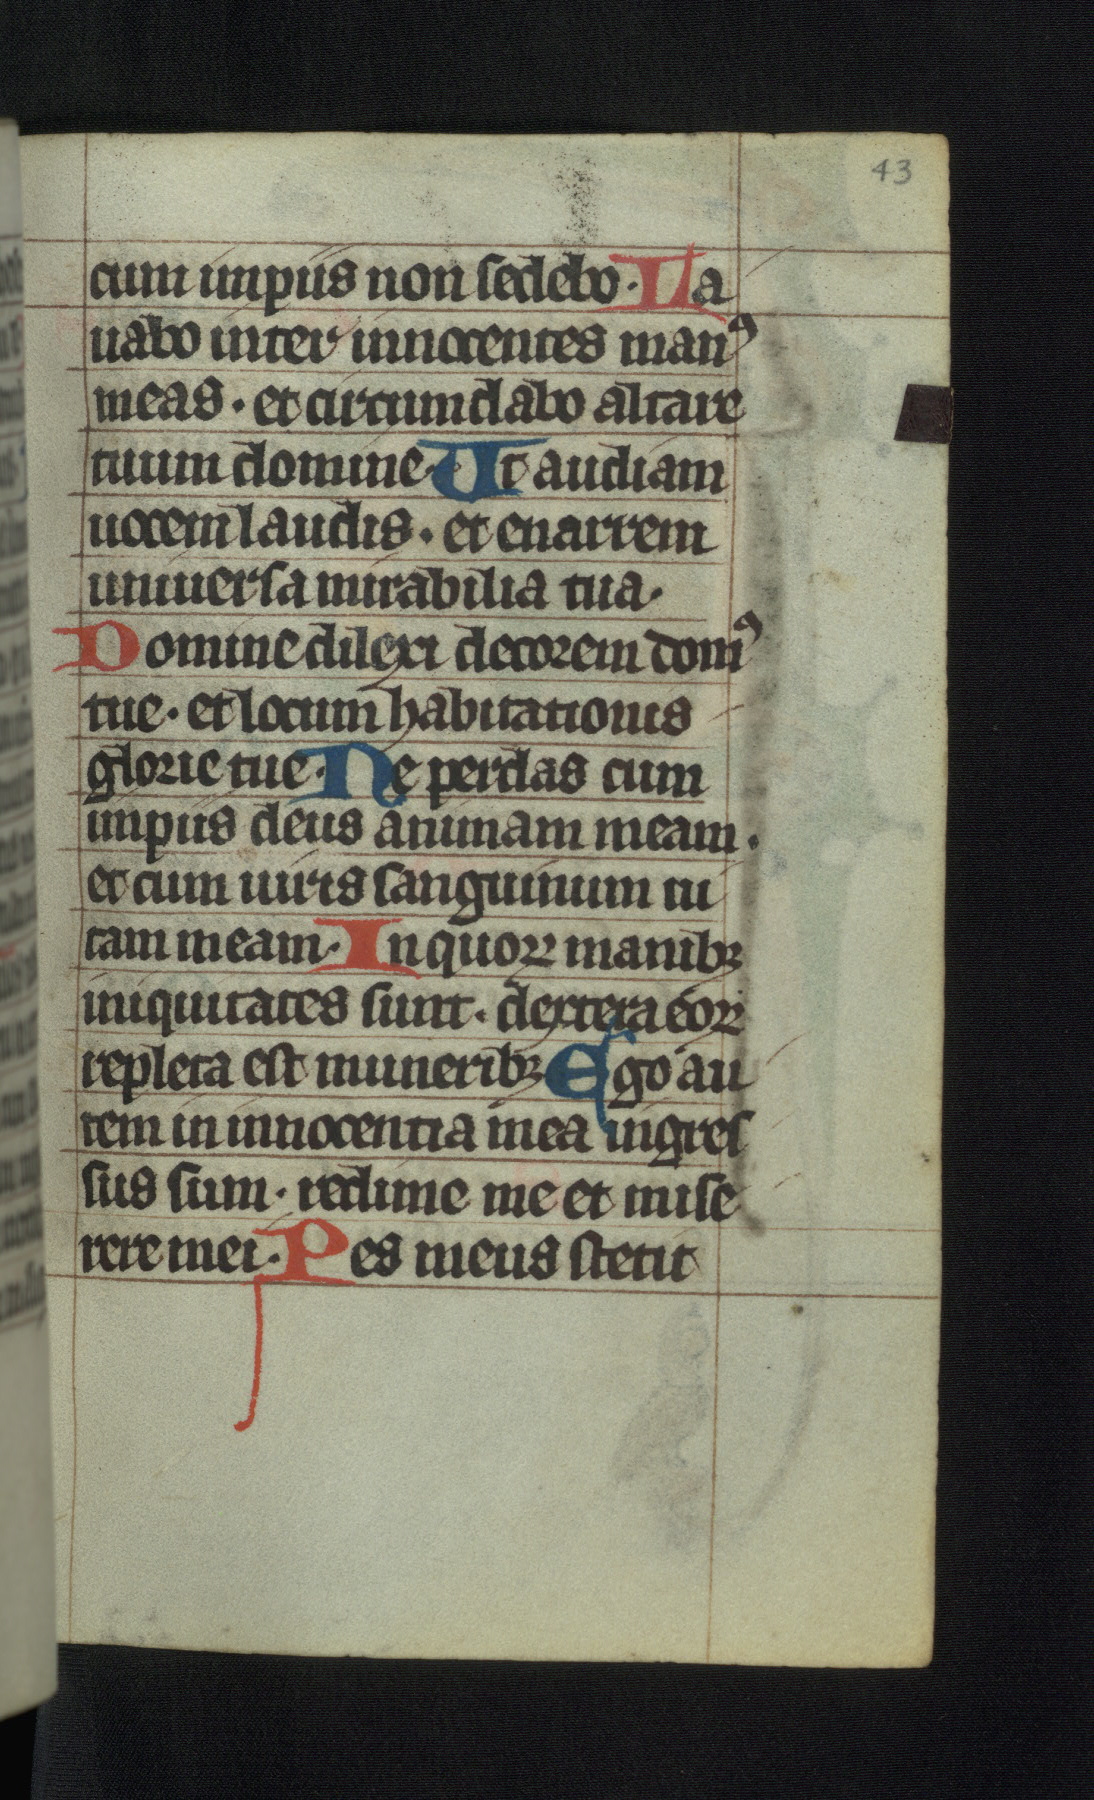 43
cum impiis non sedebo · La
uabo inter innocentes manꝰ
meas · et circumdabo altare
tuum domine · Ut audiam
uocem laudis · et enarrem
uniuersa mirabilia tua ·
Domine dilexi decorem domꝰ
tue · et locum habitationis
glorie tue · Ne perdas cum
impiis deus animam meam ·
et cum uiris sanguinum ui
tam meam · In quoꝝ manibꝫ
iniquitates sunt · dextera eoꝝ
repleta est muneribꝫ Ego au
tem in innocentia mea ingres
sus sum · redime me et mise
rere mei · Pes meus stetit